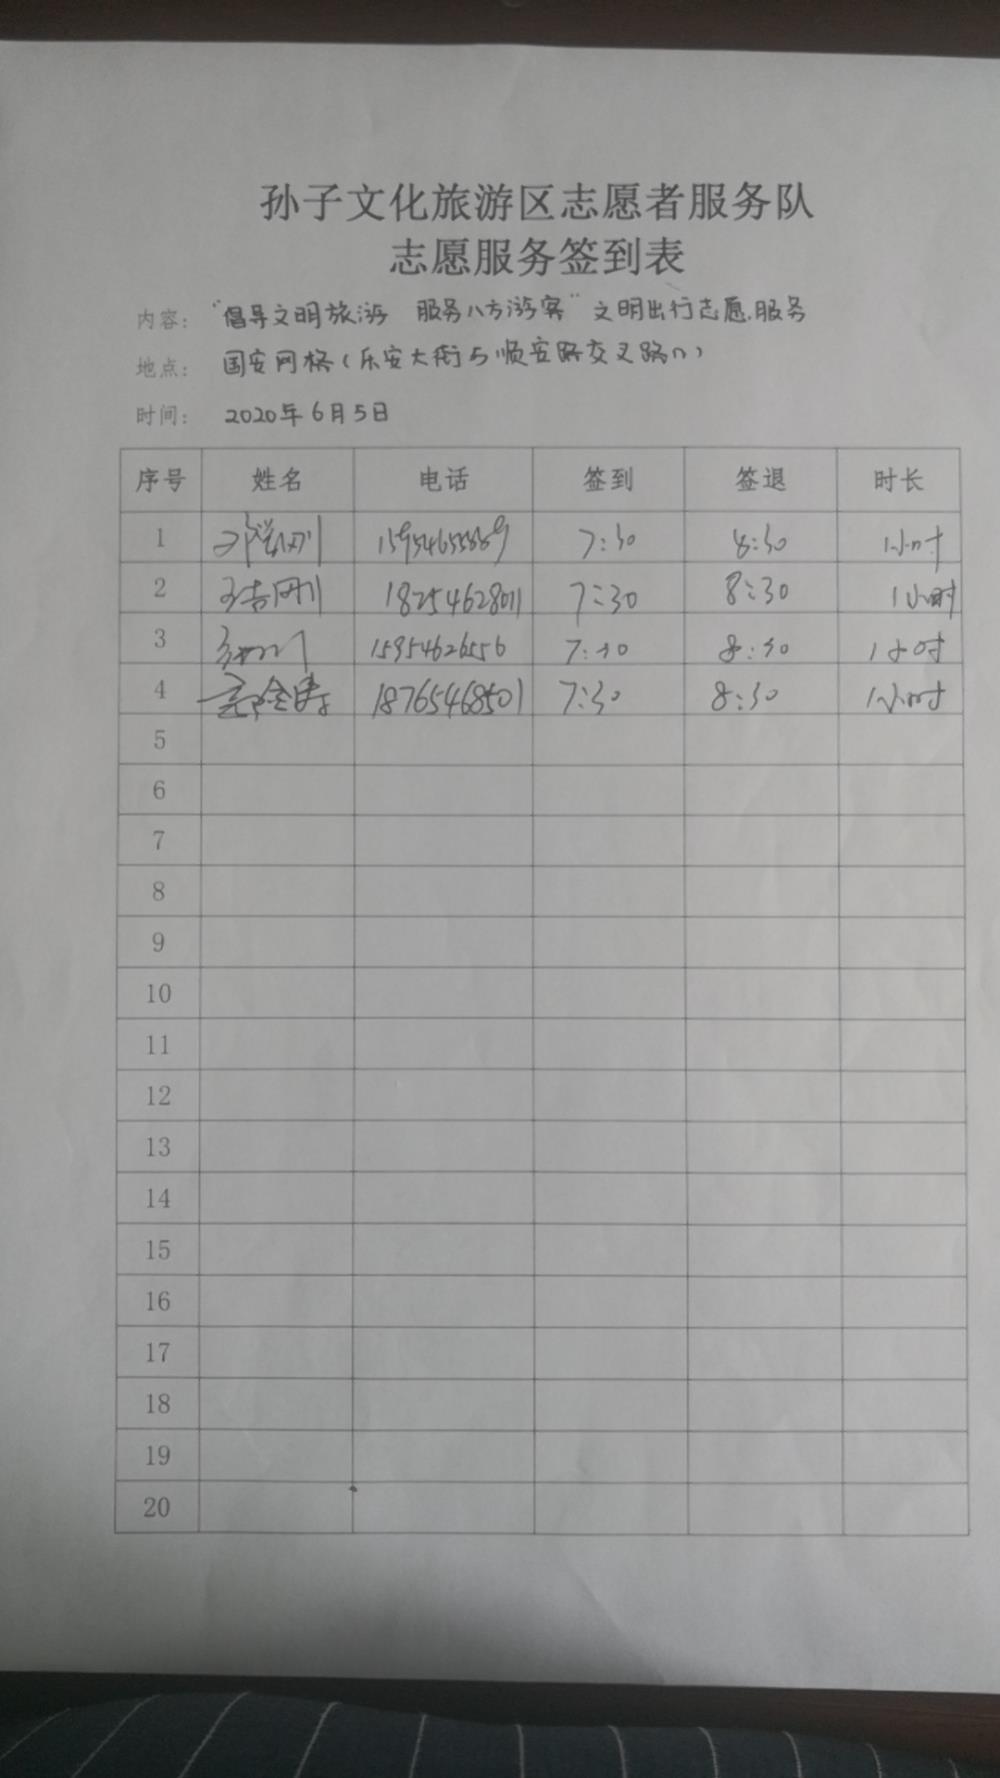 孙子文化旅游区志愿者服务队
志愿服务签到表
内容： “倡导文明旅游 服务八方游客” 文明出行志愿服务
地点： 国安网格（乐安大街与顺安路交叉路口）
时间： 2020年6月5日
序号 姓名 电话 签到 签退 时长
1 7:30 8:30 1小时
2 18254628011 7:30 8:30 1小时
3 15954626556 7:30 8:30 1小时
4 18765468501 7:30 8:30 1小时
5
6
7
8
9
10
11
12
13
14
15
16
17
18
19
20